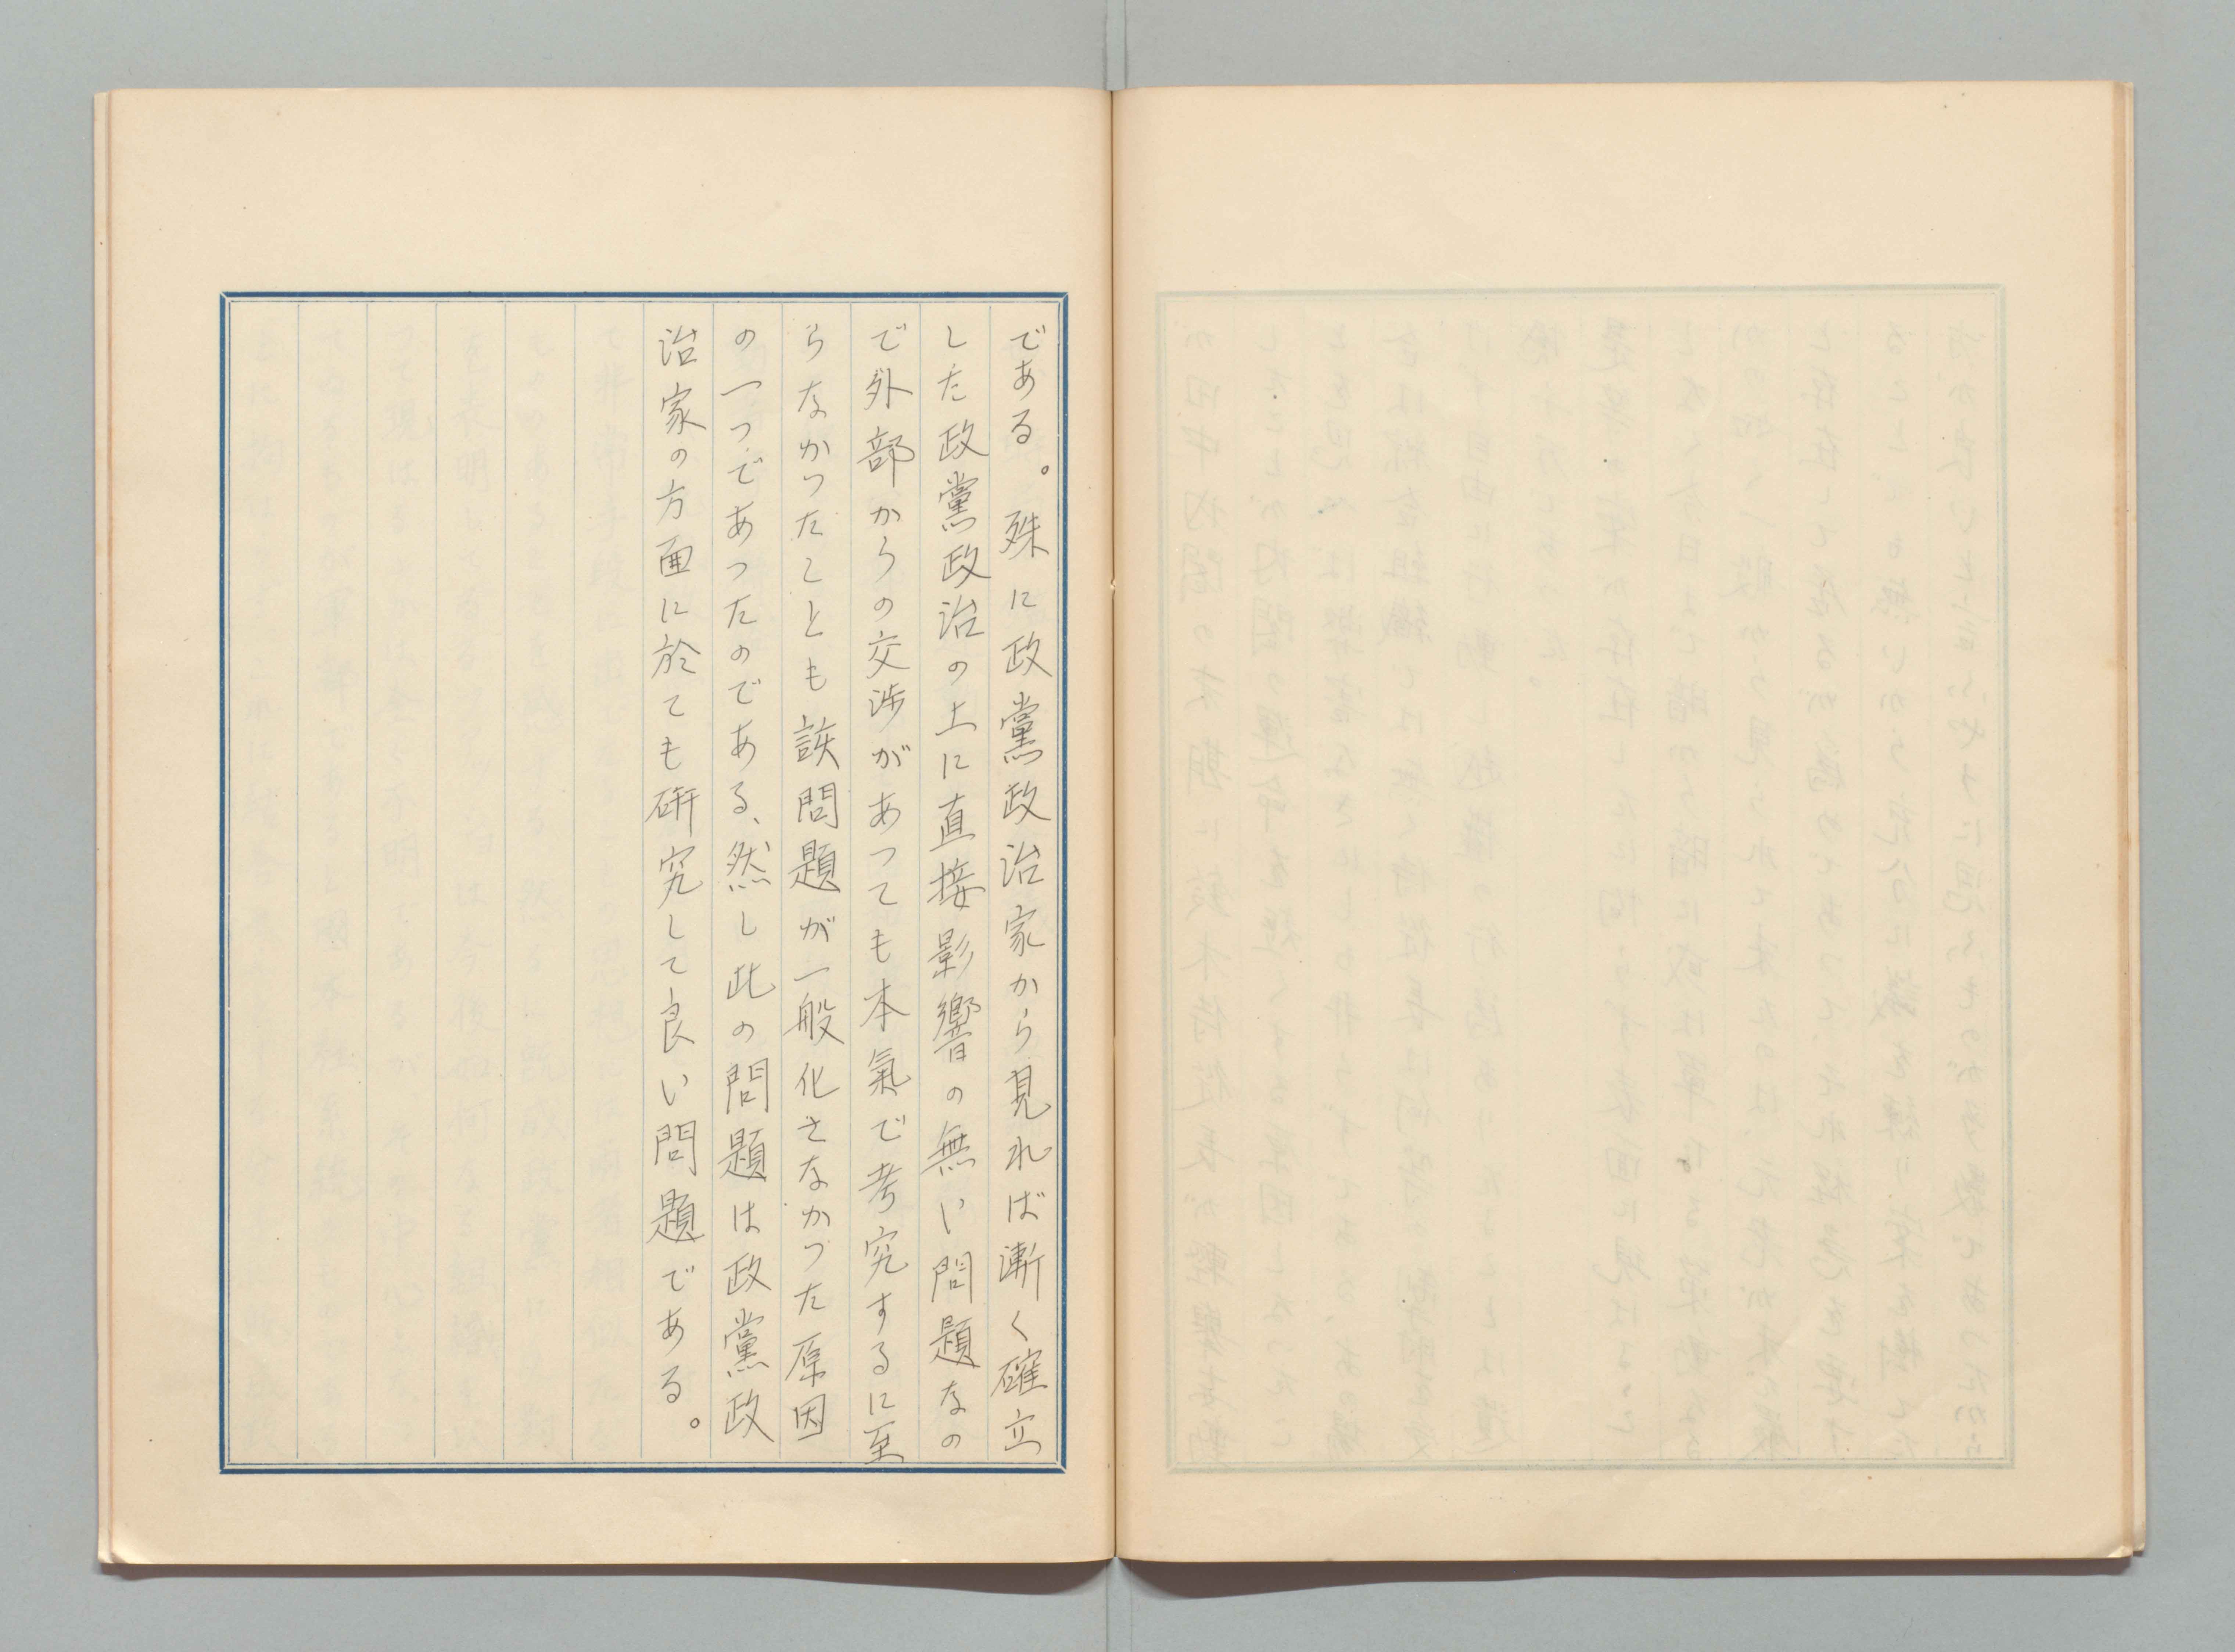 である。殊に政黨政治家から見れば漸く確立
した政黨政治の上に直接影響の無い問題なの
で外部からの交渉があつても本氣で考究するに至
らなかつたことも該問題が一般化さなかつた原因
の一つであつたのである、然し此の問題は政黨政
治家の方面に於ても研究して良い問題である。